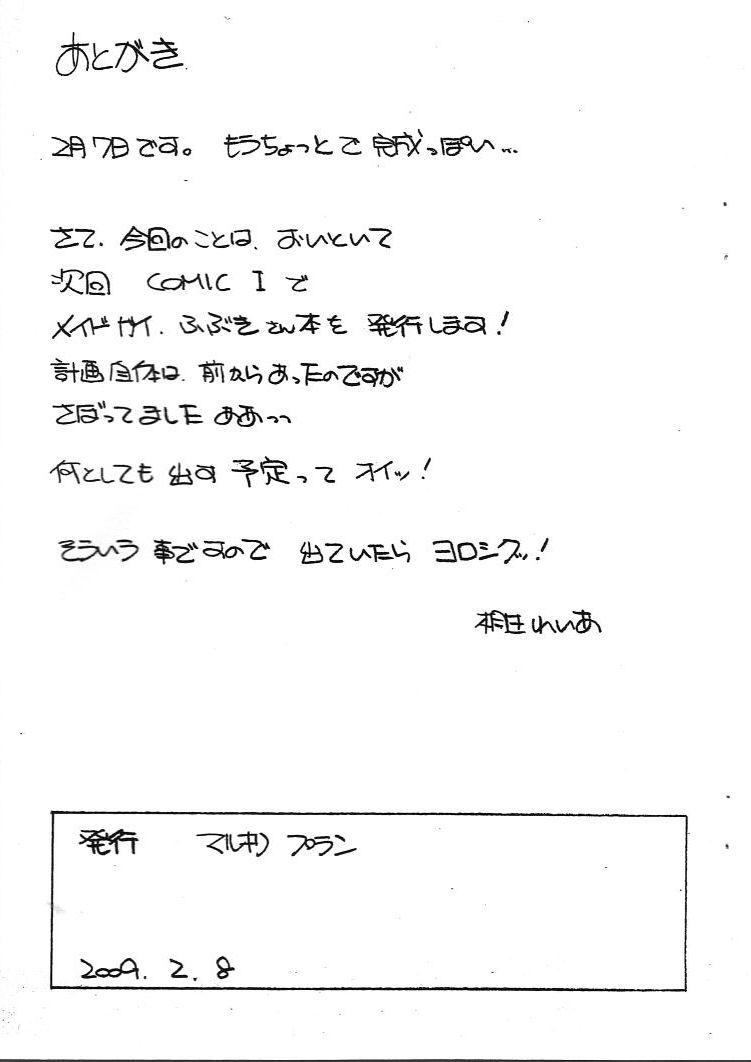 あとがき
2月7日です。もうちょっとで 完成っぽい…
さて、今回のことは、おいといて
次回 COMIC I で
メイドガイ、ふぶきさん本を 発行します!
計画自体は、前からあったのですが
さぼってました ああっっ
何としても 出す 予定って オイッ!
そういう 事ですので 出ていたら ヨロシクッ!
れいあ
発行 マルキノ プラン
2009. 2. 8